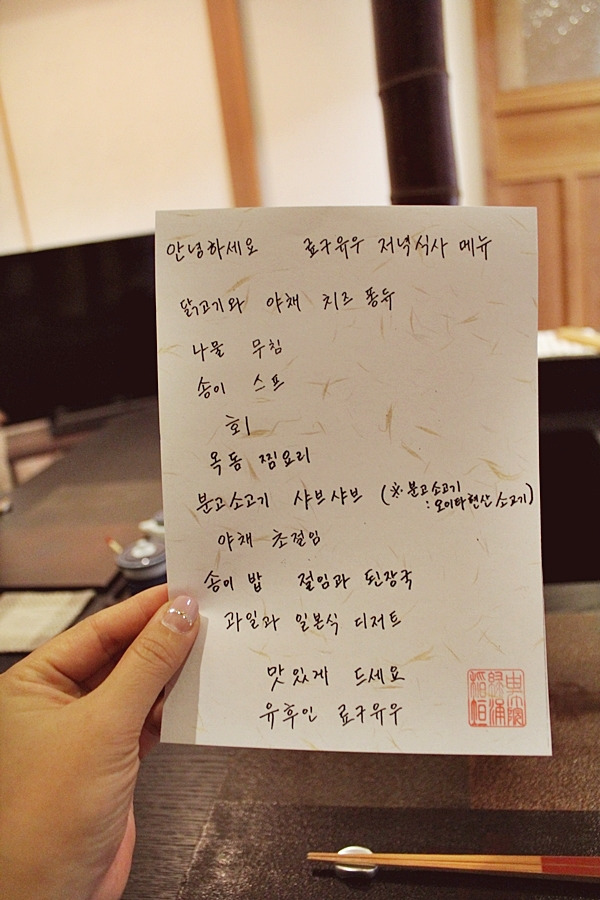 안녕하세요 료구유우 저녁식사 메뉴
닭고기와 야채 치즈 퐁듀
나물 무침
송이 스프
회
옥돔 찜요리
분고소고기 샤브샤브 (※. 분고소고기
: 오이타현산 소고기)
야채 초절임
송이 밥 절임과 된장국
과일과 일본식 디저트
맛있게 드세요
유후인 료구유우